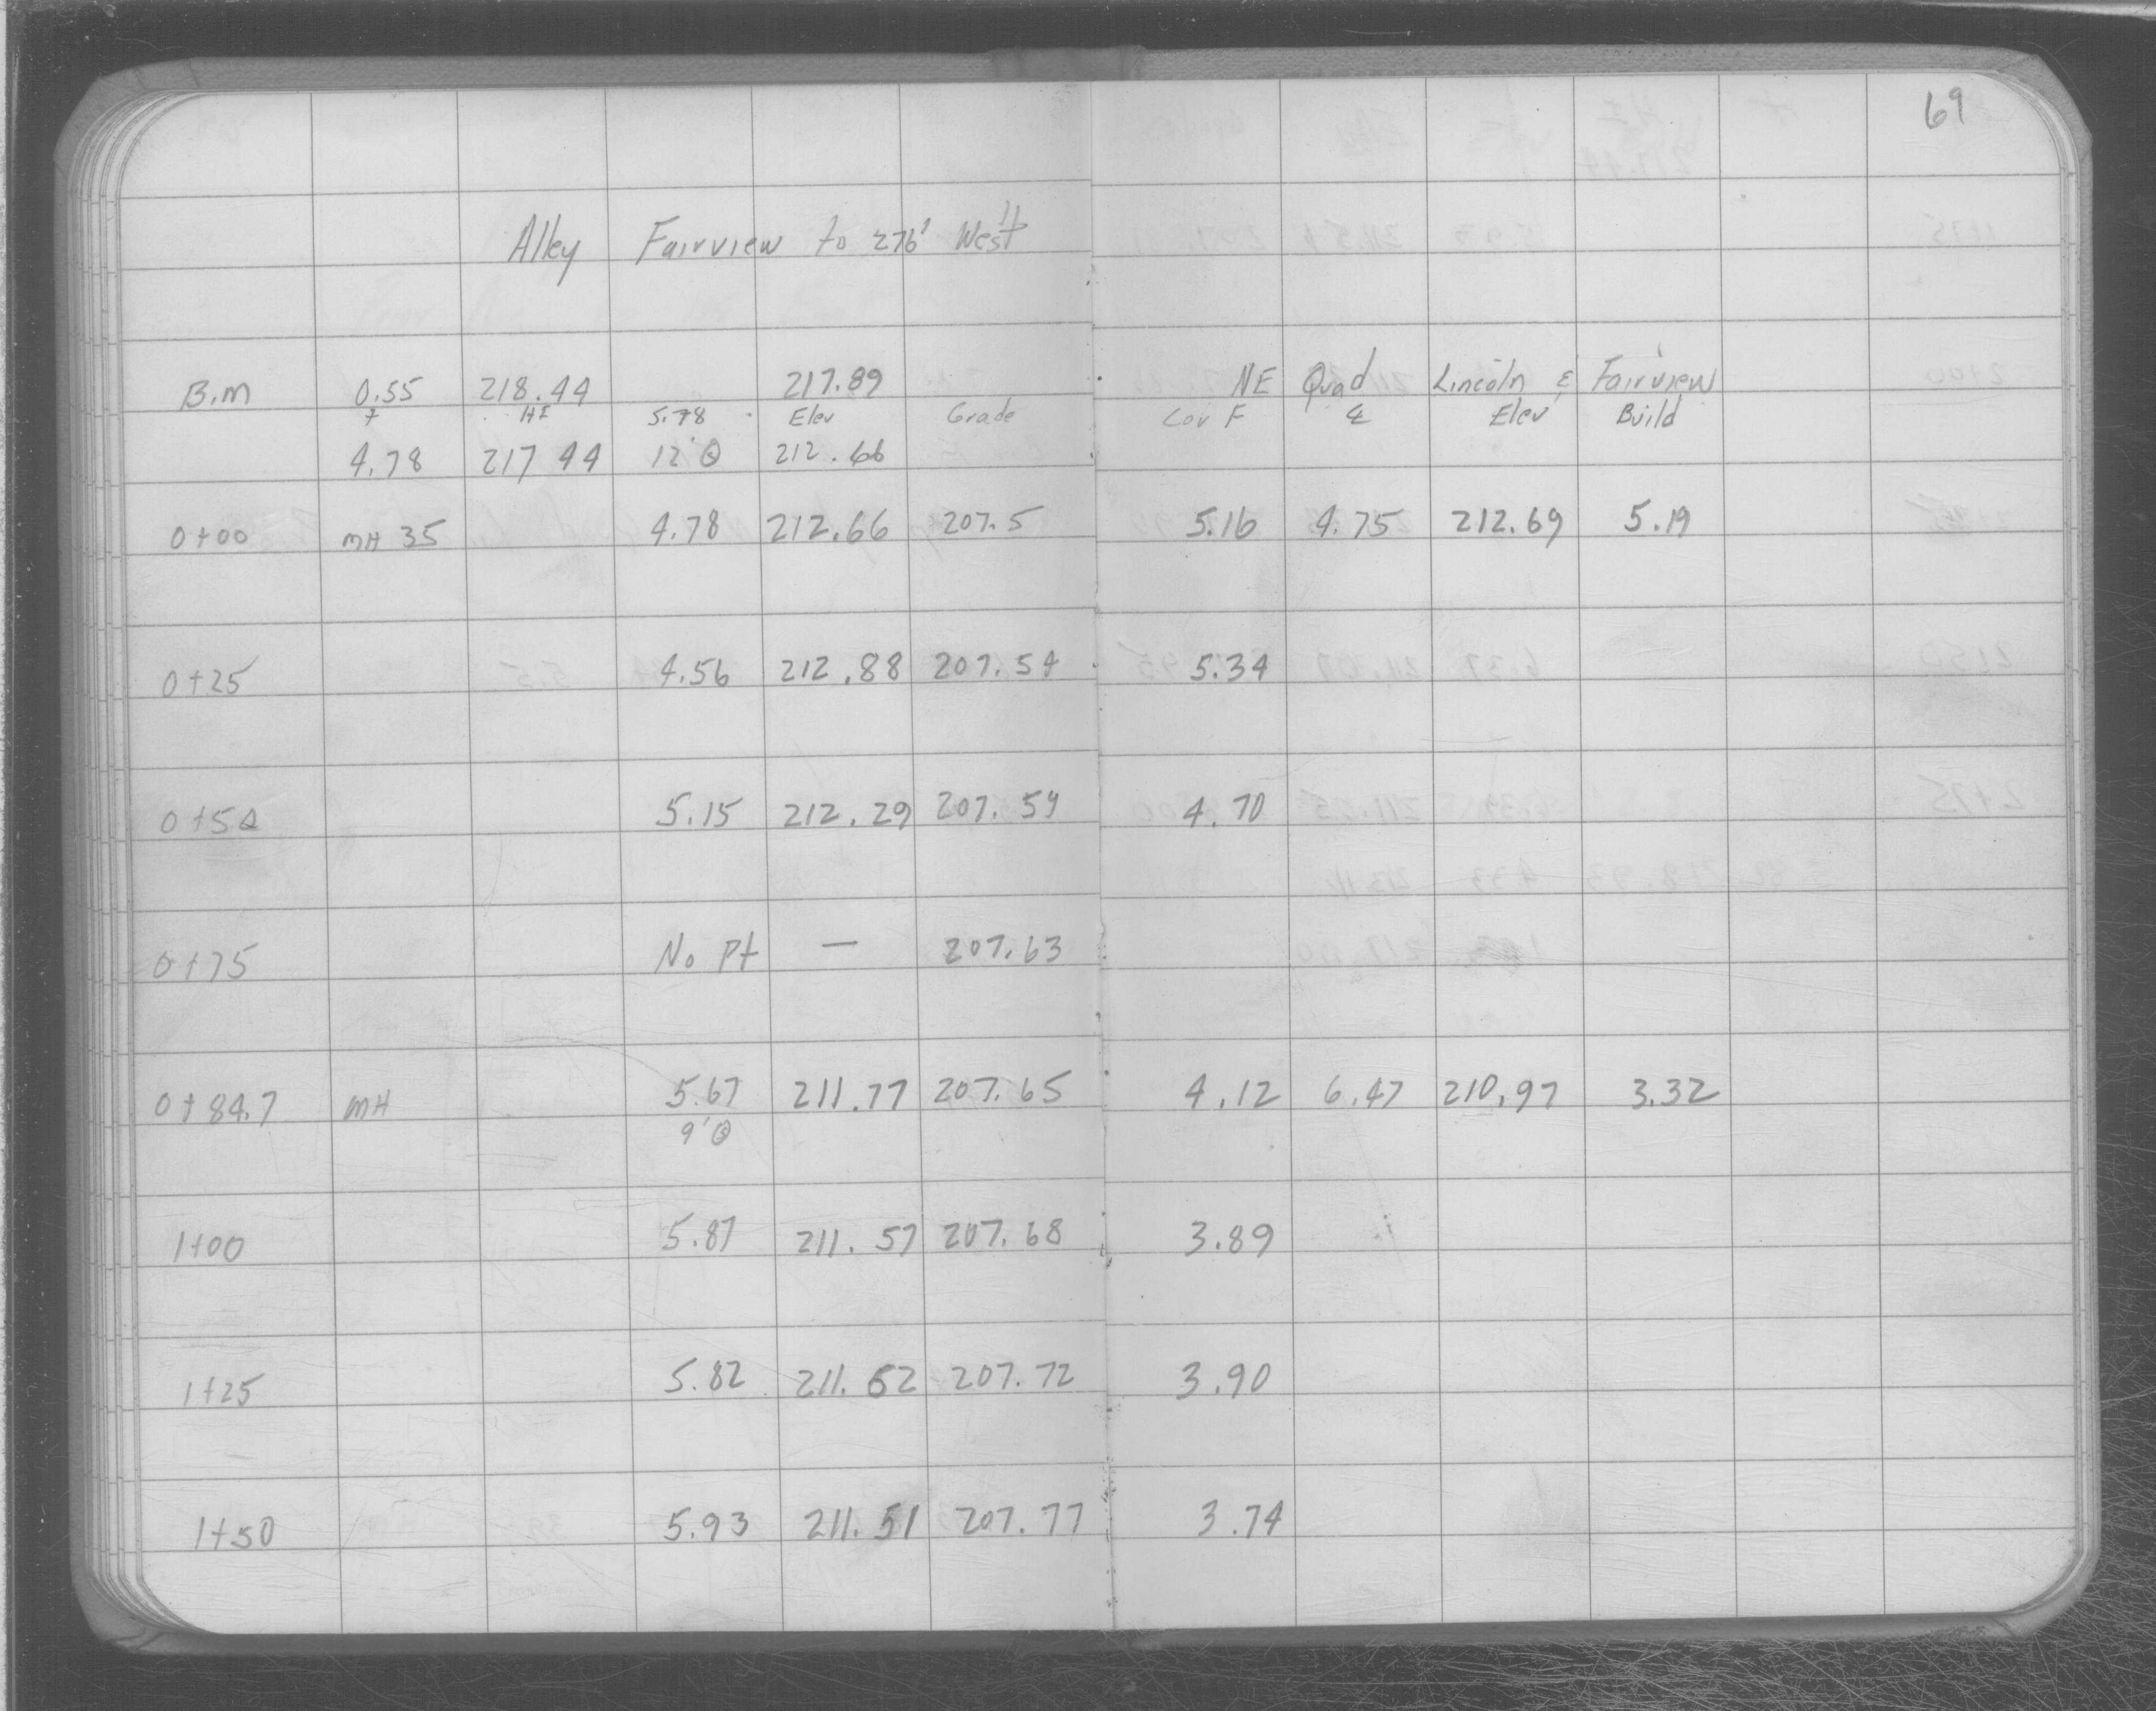 69
Alley Fairview to 276' West
B.M 0.55 218.44 217.89 NE Quad Lincoln & Fairview
+ HI 5.78 Elev Grade Cov F ℄ Elev Build
4.78 217 44 12' @ 212.66
0+00 MH 35 4.78 212.66 207.5 5.16 4.75 212.69 5.19
0+25 4.56 212.88 207.54 5.34
0+50 5.15 212.29 207.59 4.70
0+75 No Pt — 207.63
0+84.7 MH 5.67 211.77 207.65 4.12 6.47 210.97 3.32
9' @
1+00 5.87 211.57 207.68 3.89
1+25 5.82 211.62 207.72 3.90
1+50 5.93 211.51 207.77 3.74